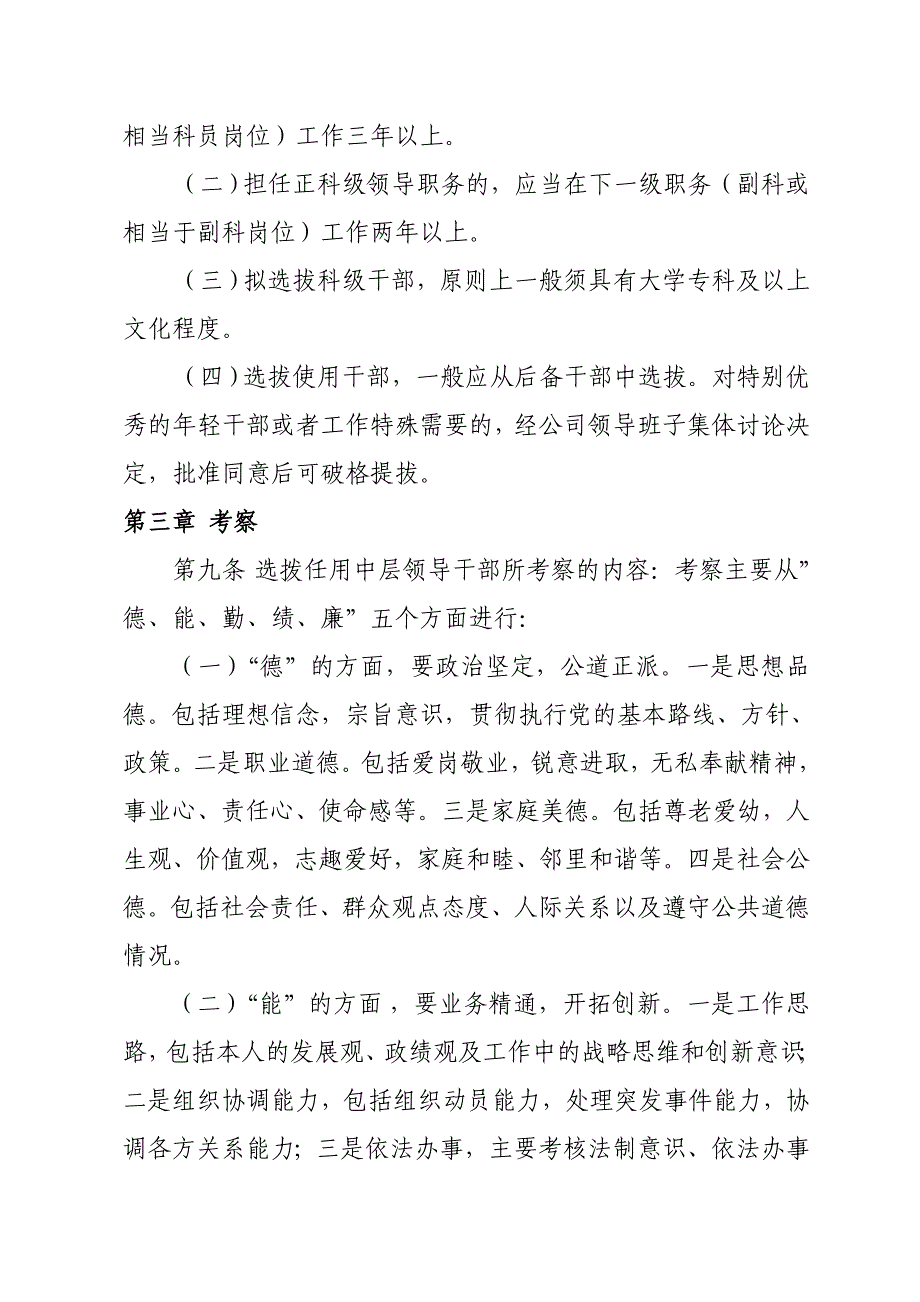 相当科员岗位）工作三年以上。
（二）担任正科级领导职务的，应当在下一级职务（副科或
相当于副科岗位）工作两年以上。
（三）拟选拔科级干部，原则上一般须具有大学专科及以上
文化程度。
（四）选拔使用干部，一般应从后备干部中选拔。对特别优
秀的年轻干部或者工作特殊需要的，经公司领导班子集体讨论决
定，批准同意后可破格提拔。
第三章 考察
第九条 选拨任用中层领导干部所考察的内容：考察主要从”
德、能、勤、绩、廉”五个方面进行：
（一）“德”的方面，要政治坚定，公道正派。一是思想品
德。包括理想信念，宗旨意识，贯彻执行党的基本路线、方针、
政策。二是职业道德。包括爱岗敬业，锐意进取，无私奉献精神，
事业心、责任心、使命感等。三是家庭美德。包括尊老爱幼，人
生观、价值观，志趣爱好，家庭和睦、邻里和谐等。四是社会公
德。包括社会责任、群众观点态度、人际关系以及遵守公共道德
情况。
（二）“能”的方面 ，要业务精通，开拓创新。一是工作思
路，包括本人的发展观、政绩观及工作中的战略思维和创新意识；
二是组织协调能力，包括组织动员能力，处理突发事件能力，协
调各方关系能力；三是依法办事，主要考核法制意识、依法办事